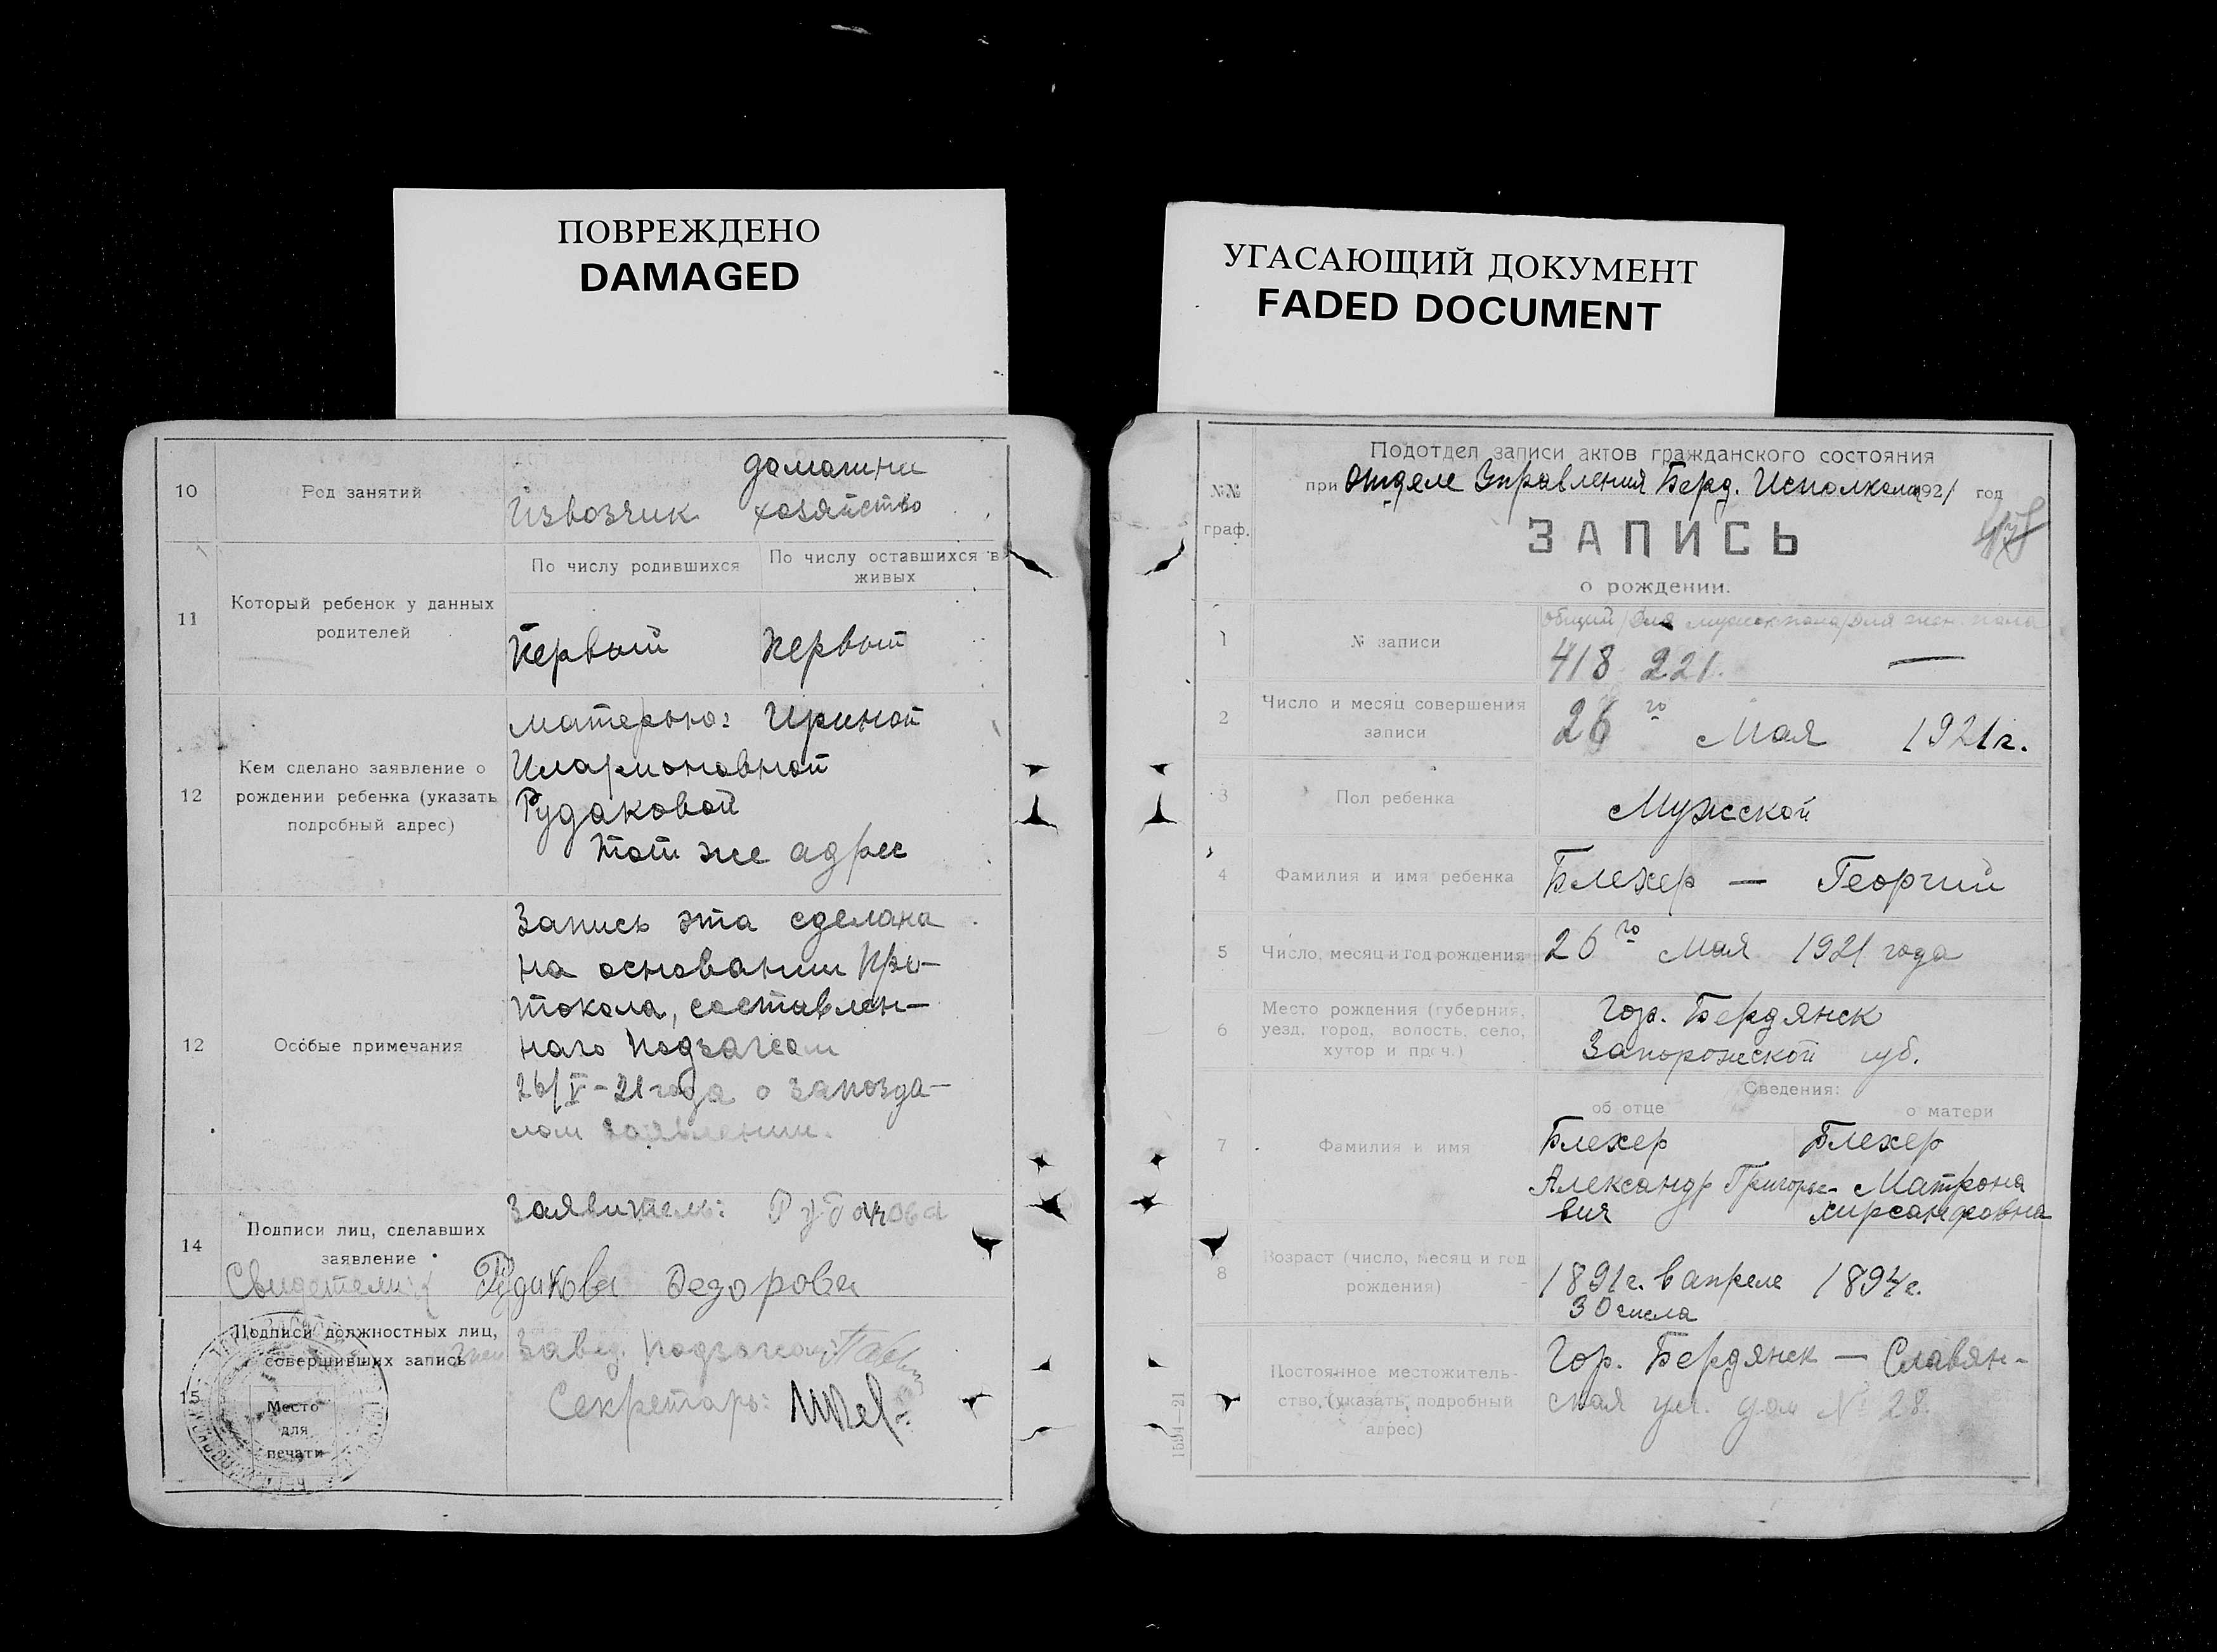 ПОВРЕЖДЕНО
DAMAGED
10 Род занятий
Извозчик домашнее
хозяйство
11 Который ребенок у данных
родителей
По числу родившихся
По числу оставшихся в
живых
Первый Первый
12 Кем сделано заявление о
рождении ребенка (указать
подробный адрес)
матерью: Ириной
Иларионовной
Рудаковой
тот же адрес
12 Особые примечания
Запись эта сделана
на основании Про-
токола, составлен-
наго Подзагсом
26/V-21 года о запозда-
лом заявлении.
14 Подписи лиц, сделавших
заявление
Заявитель: Рудакова
Свидетели: Рудакова
15 Подписи должностных лиц,
совершивших запись
Завед. Подзагсом
Секретарь:
Место
для
печати
УГАСАЮЩИЙ ДОКУМЕНТ
FADED DOCUMENT
№№
граф.
Подотдел записи актов гражданского состояния
при Отделе Управления Берд. Исполкома 1921 год
ЗАПИСЬ
о рождении.
1 № записи
общий / для мужск. пола / для жен. пола
418 221. —
2 Число и месяц совершения
записи
26го Мая 1921 г.
3 Пол ребенка
Мужской
4 Фамилия и имя ребенка
Блехер — Георгий
5 Число, месяц и год рождения
26го Мая 1921 года
6 Место рождения (губерния,
уезд, город, волость, село,
хутор и проч.)
Гор. Бердянск
Запорожской губ.
Сведения:
об отце о матери
7 Фамилия и имя
Блехер Блехер
Александр Григорье- Матрона
вич
8 Возраст (число, месяц и год
рождения)
1891 г. в апреле 1894 г.
30 числа
Постоянное местожитель-
ство, (указать, подробный
адрес)
Гор. Бердянск — Славян-
ская ул. дом № 28.
1594—21